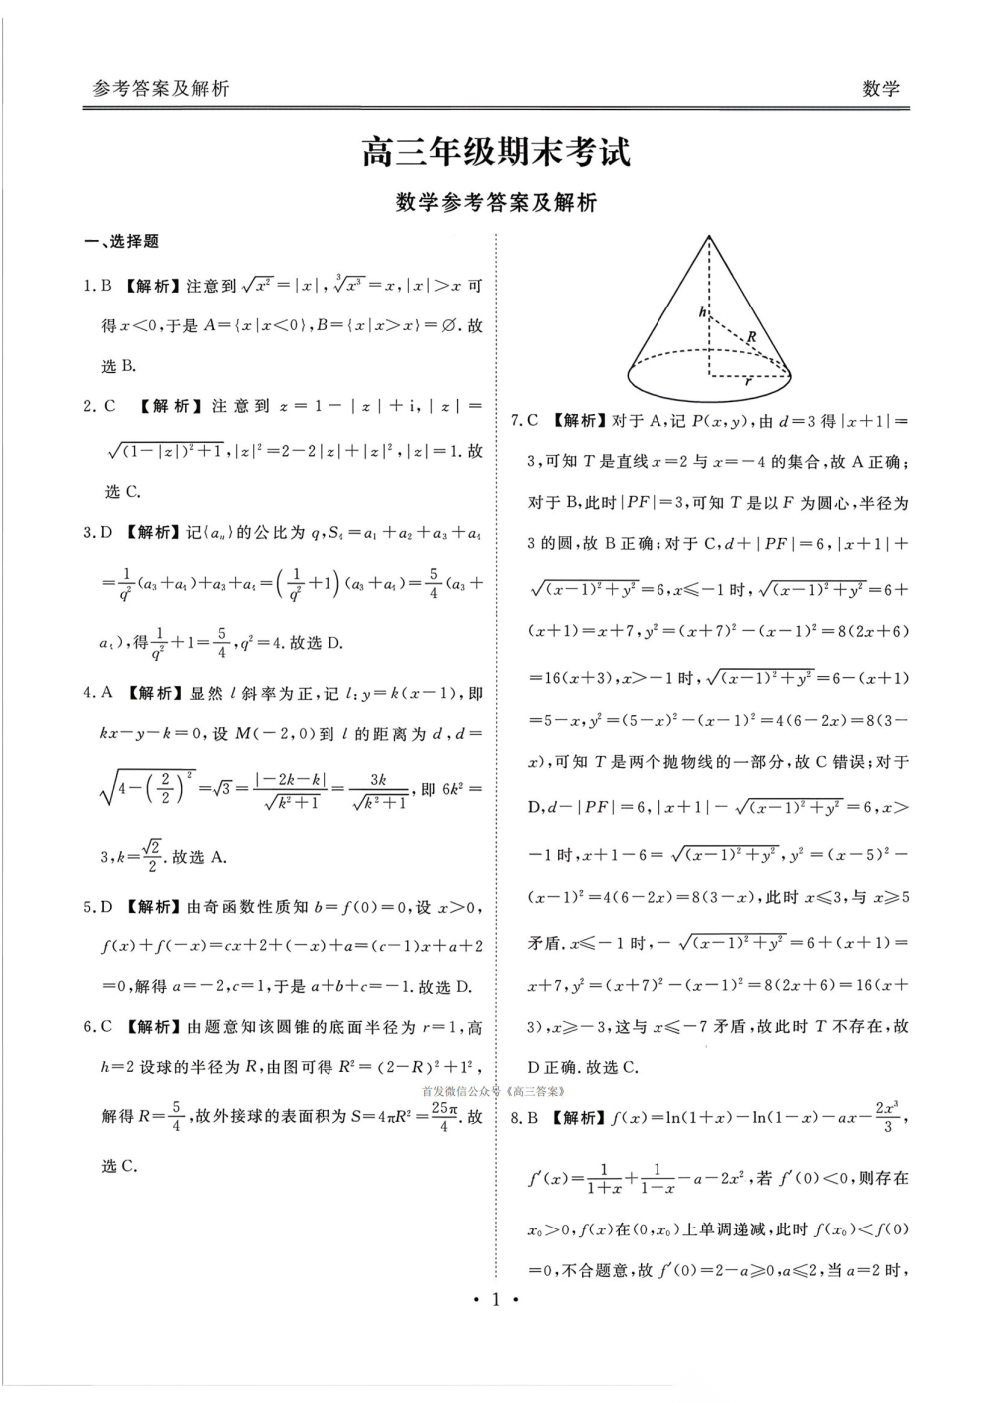 参考答案及解析 数学
高三年级期末考试
数学参考答案及解析
一、选择题
1. B 【解析】注意到 √(x²) = |x|, ³√(x³) = x, |x| > x 可
得 x<0,于是 A={x|x<0},B={x|x>x}=∅.故
选 B.
2. C 【解析】注意到 z = 1 - |z| + i, |z| =
√((1-|z|)²+1), |z|²=2-2|z|+|z|², |z|=1.故
选 C.
3. D 【解析】记{aₙ}的公比为 q,S₄=a₁+a₂+a₃+a₄
=1/q²(a₃+a₄)+a₃+a₄=(1/q²+1)(a₃+a₄)=5/4(a₃+
a₄),得1/q²+1=5/4,q²=4.故选 D.
4. A 【解析】显然 l 斜率为正,记 l:y=k(x-1),即
kx-y-k=0,设 M(-2,0)到 l 的距离为 d,d=
√(4-(2/2)²)=√3=|-2k-k|/√(k²+1)=3k/√(k²+1),即 6k²=
3,k=√2/2.故选 A.
5. D 【解析】由奇函数性质知 b=f(0)=0,设 x>0,
f(x)+f(-x)=cx+2+(-x)+a=(c-1)x+a+2
=0,解得 a=-2,c=1,于是 a+b+c=-1.故选 D.
6. C 【解析】由题意知该圆锥的底面半径为 r=1,高
h=2 设球的半径为 R,由图可得 R²=(2-R)²+1²,
解得 R=5/4,故外接球的表面积为 S=4πR²=25π/4.故
选 C.
h
R
r
7. C 【解析】对于 A,记 P(x,y),由 d=3 得|x+1|=
3,可知 T 是直线 x=2 与 x=-4 的集合,故 A 正确;
对于 B,此时|PF|=3,可知 T 是以 F 为圆心,半径为
3 的圆,故 B 正确;对于 C,d+|PF|=6,|x+1|+
√((x-1)²+y²)=6,x≤-1 时,√((x-1)²+y²)=6+
(x+1)=x+7,y²=(x+7)²-(x-1)²=8(2x+6)
=16(x+3),x>-1 时,√((x-1)²+y²)=6-(x+1)
=5-x,y²=(5-x)²-(x-1)²=4(6-2x)=8(3-
x),可知 T 是两个抛物线的一部分,故 C 错误;对于
D,d-|PF|=6,|x+1|-√((x-1)²+y²)=6,x>
-1 时,x+1-6=√((x-1)²+y²),y²=(x-5)²-
(x-1)²=4(6-2x)=8(3-x),此时 x≤3,与 x≥5
矛盾.x≤-1 时,-√((x-1)²+y²)=6+(x+1)=
x+7,y²=(x+7)²-(x-1)²=8(2x+6)=16(x+
3),x≥-3,这与 x≤-7 矛盾,故此时 T 不存在,故
D 正确.故选 C.
首发微信公众号《高三答案》
8. B 【解析】f(x)=ln(1+x)-ln(1-x)-ax-2x³/3,
f′(x)=1/(1+x)+1/(1-x)-a-2x²,若 f′(0)<0,则存在
x₀>0,f(x)在(0,x₀)上单调递减,此时 f(x₀)<f(0)
=0,不合题意,故 f′(0)=2-a≥0,a≤2,当 a=2 时,
• 1 •